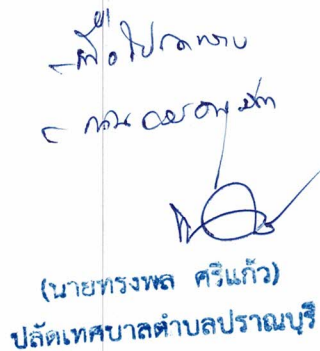 - เพื่อโปรดทราบ
- เห็นควรอนุมัติ
(นายทรงพล ศรีแก้ว)
ปลัดเทศบาลตำบลปราณบุรี